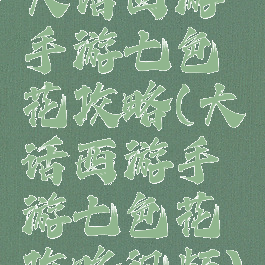 大话西游
手游七包
花攻略(大
话西游手
游七包花
攻略视频)